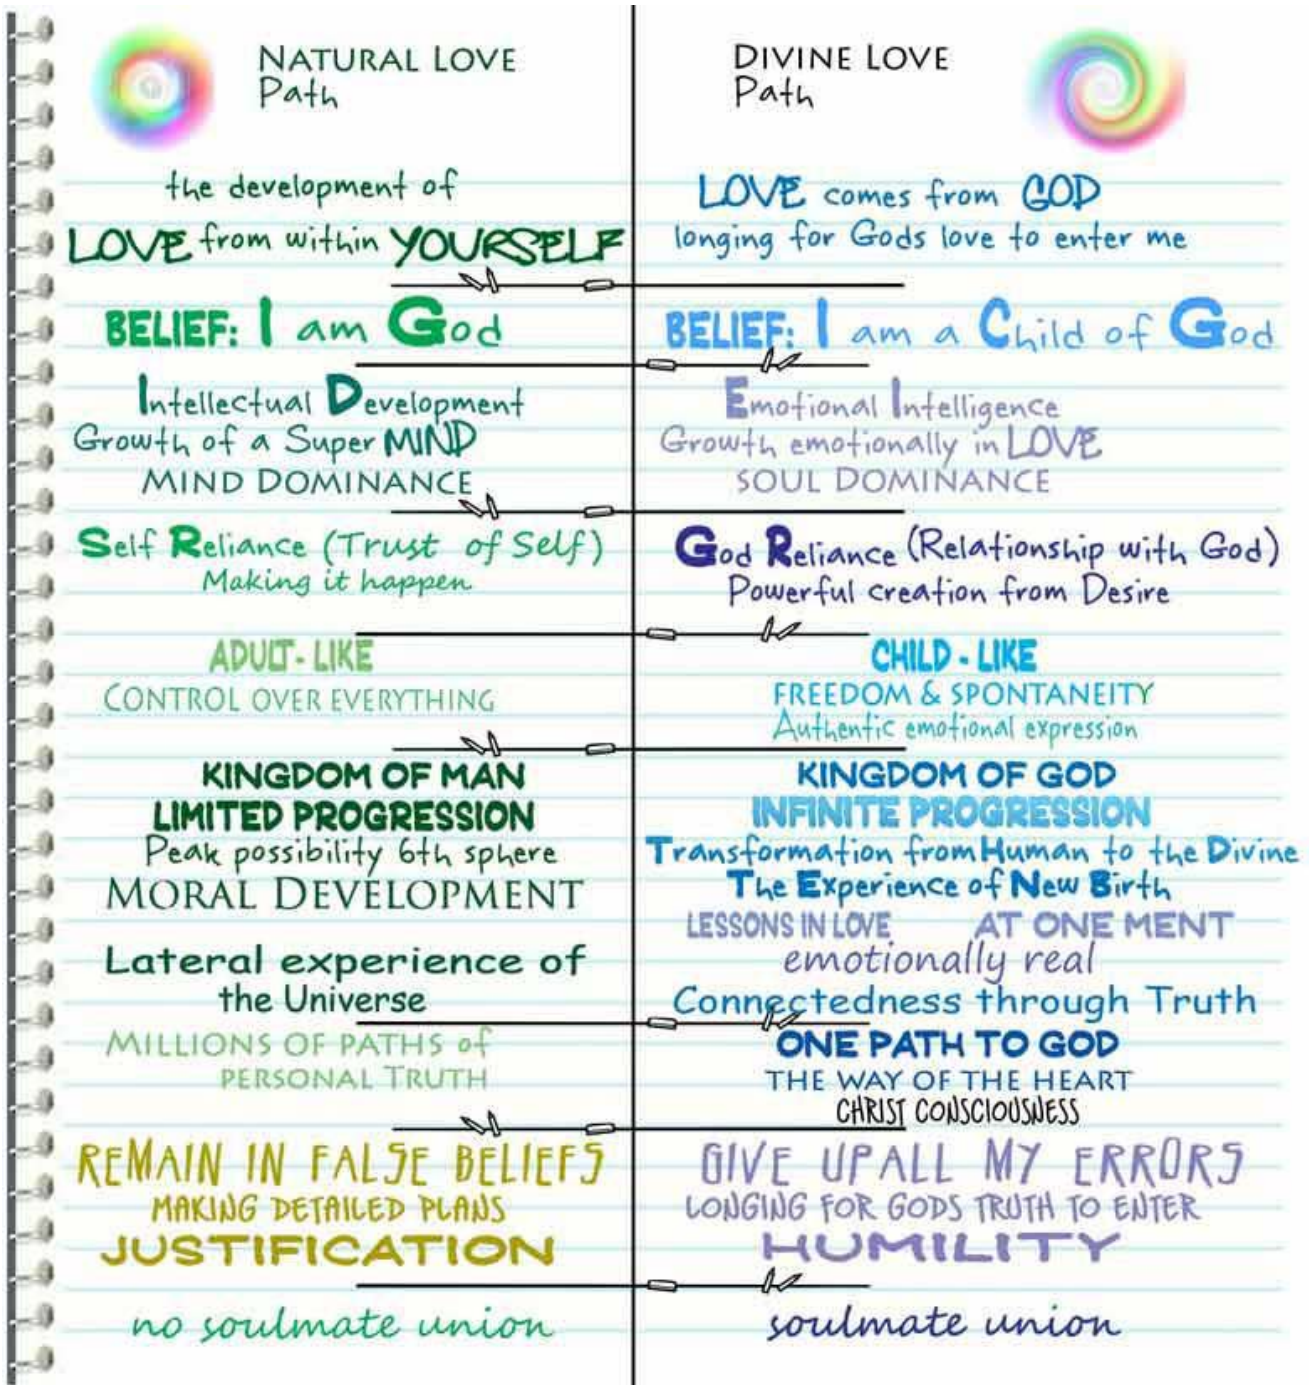 NATURAL LOVE
Path
the development of
LOVE from within YOURSELF
BELIEF: I am God
Intellectual Development
Growth of a Super MIND
MIND DOMINANCE
Self Reliance (Trust of Self)
Making it happen
ADULT-LIKE
CONTROL OVER EVERYTHING
KINGDOM OF MAN
LIMITED PROGRESSION
Peak possibility 6th sphere
MORAL DEVELOPMENT
Lateral experience of
the Universe
MILLIONS OF PATHS of
PERSONAL TRUTH
REMAIN IN FALSE BELIEFS
MAKING DETAILED PLANS
JUSTIFICATION
no soulmate union
DIVINE LOVE
Path
LOVE comes from GOD
longing for Gods love to enter me
BELIEF: I am a Child of God
Emotional Intelligence
Growth emotionally in LOVE
SOUL DOMINANCE
God Reliance (Relationship with God)
Powerful creation from Desire
CHILD - LIKE
FREEDOM & SPONTANEITY
Authentic emotional expression
KINGDOM OF GOD
INFINITE PROGRESSION
Transformation from Human to the Divine
The Experience of New Birth
LESSONS IN LOVE AT ONE MENT
emotionally real
Connectedness through Truth
ONE PATH TO GOD
THE WAY OF THE HEART
CHRIST CONSCIOUSNESS
GIVE UP ALL MY ERRORS
LONGING FOR GODS TRUTH TO ENTER
HUMILITY
soulmate union